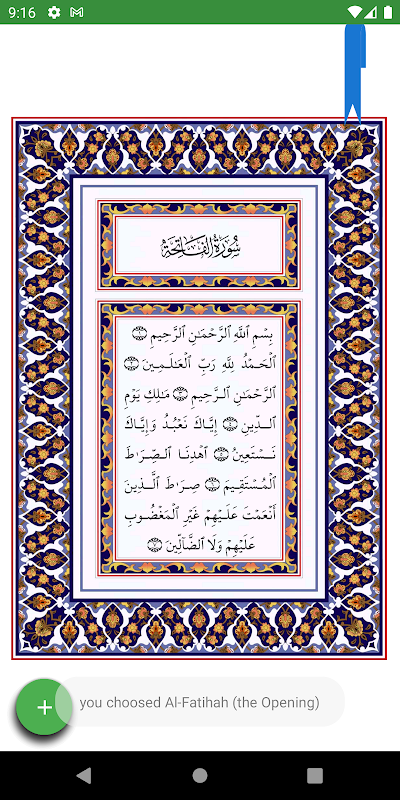 9:16
سُورَةُ الفَاتِحَةِ
بِسْمِ ٱللَّهِ ٱلرَّحْمَٰنِ ٱلرَّحِيمِ ١
ٱلْحَمْدُ لِلَّهِ رَبِّ ٱلْعَٰلَمِينَ ٢
ٱلرَّحْمَٰنِ ٱلرَّحِيمِ ٣ مَٰلِكِ يَوْمِ
ٱلدِّينِ ٤ إِيَّاكَ نَعْبُدُ وَإِيَّاكَ
نَسْتَعِينُ ٥ ٱهْدِنَا ٱلصِّرَٰطَ
ٱلْمُسْتَقِيمَ ٦ صِرَٰطَ ٱلَّذِينَ
أَنْعَمْتَ عَلَيْهِمْ غَيْرِ ٱلْمَغْضُوبِ
عَلَيْهِمْ وَلَا ٱلضَّآلِّينَ ٧
you choosed Al-Fatihah (the Opening)